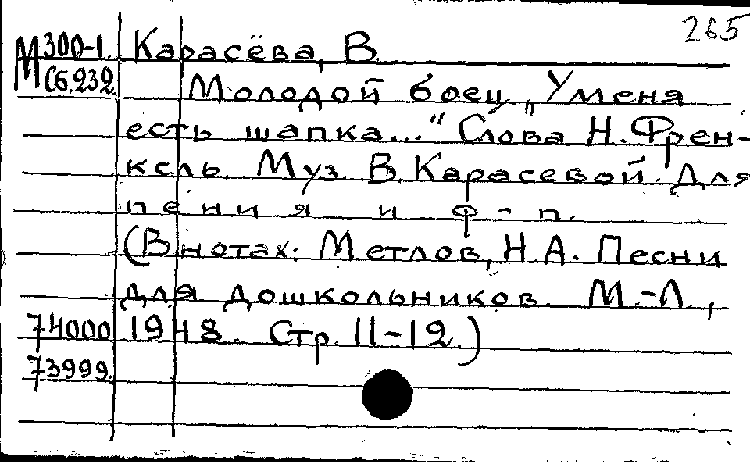 265
М 300-1. Карасёва, В.
Сб.232. Молодой боец „У меня
есть шапка..." Слова Н. Френ-
кель Муз. В. Карасевой. Для
пения и ф-п.
(В нотах: Метлов, Н.А. Песни
для дошкольников. М.-Л.,
74000 1948. Стр. 11-12.)
73999.